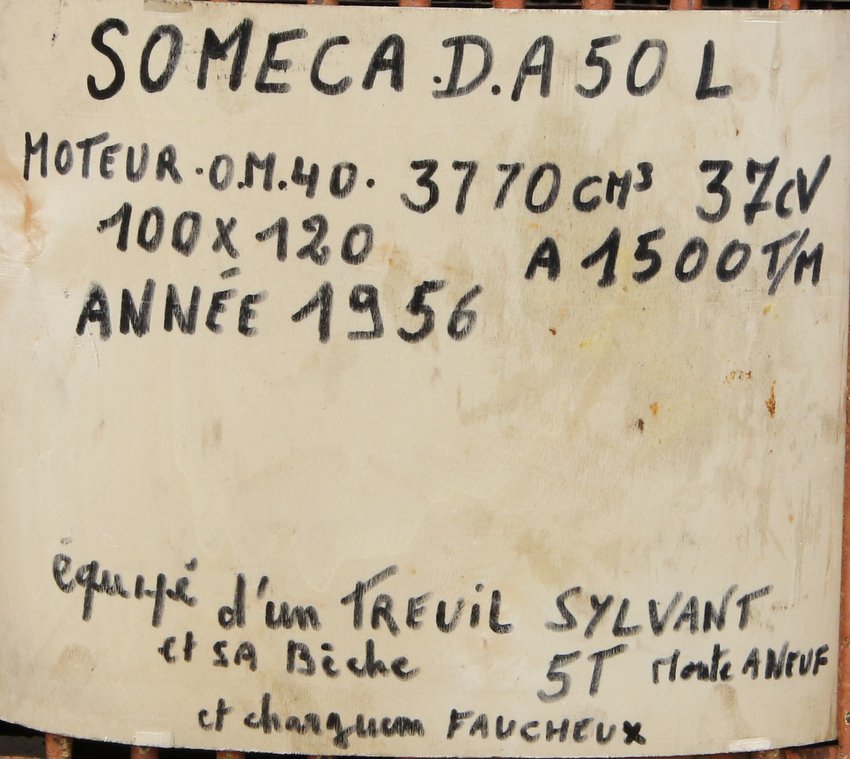 SOMECA D.A 50 L
MOTEUR.O.M.40. 3770 CM³ 37cV
100 x 120 A 1500 T/M
ANNÉE 1956
équipé d'un TREUIL SYLVANT
et SA Bèche 5T Monte A NEUF
et chargueur FAUCHEUX